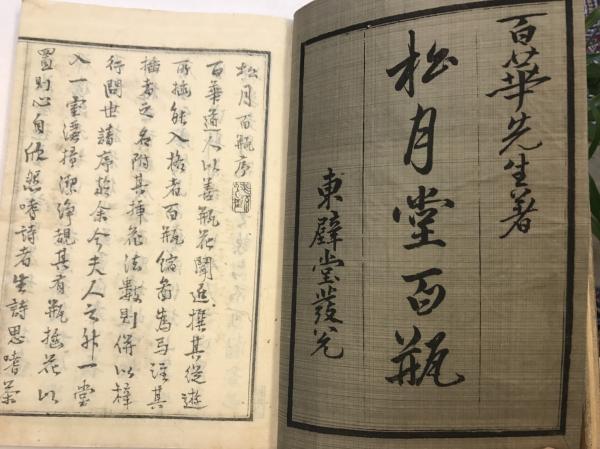 百華先生著
松月堂百瓶
東壁堂發兌
松月百瓶序
百華道人以善瓶花聞近撰其從遊
所插能入格者百瓶縮嵩焉註其
插者之名附其挿花法數則併以梓
行問世請序於余今夫人之升一堂
入一室潘掃潔淨覩其有瓶插花以
置則心自欣然嗜詩者生詩思嗜茶